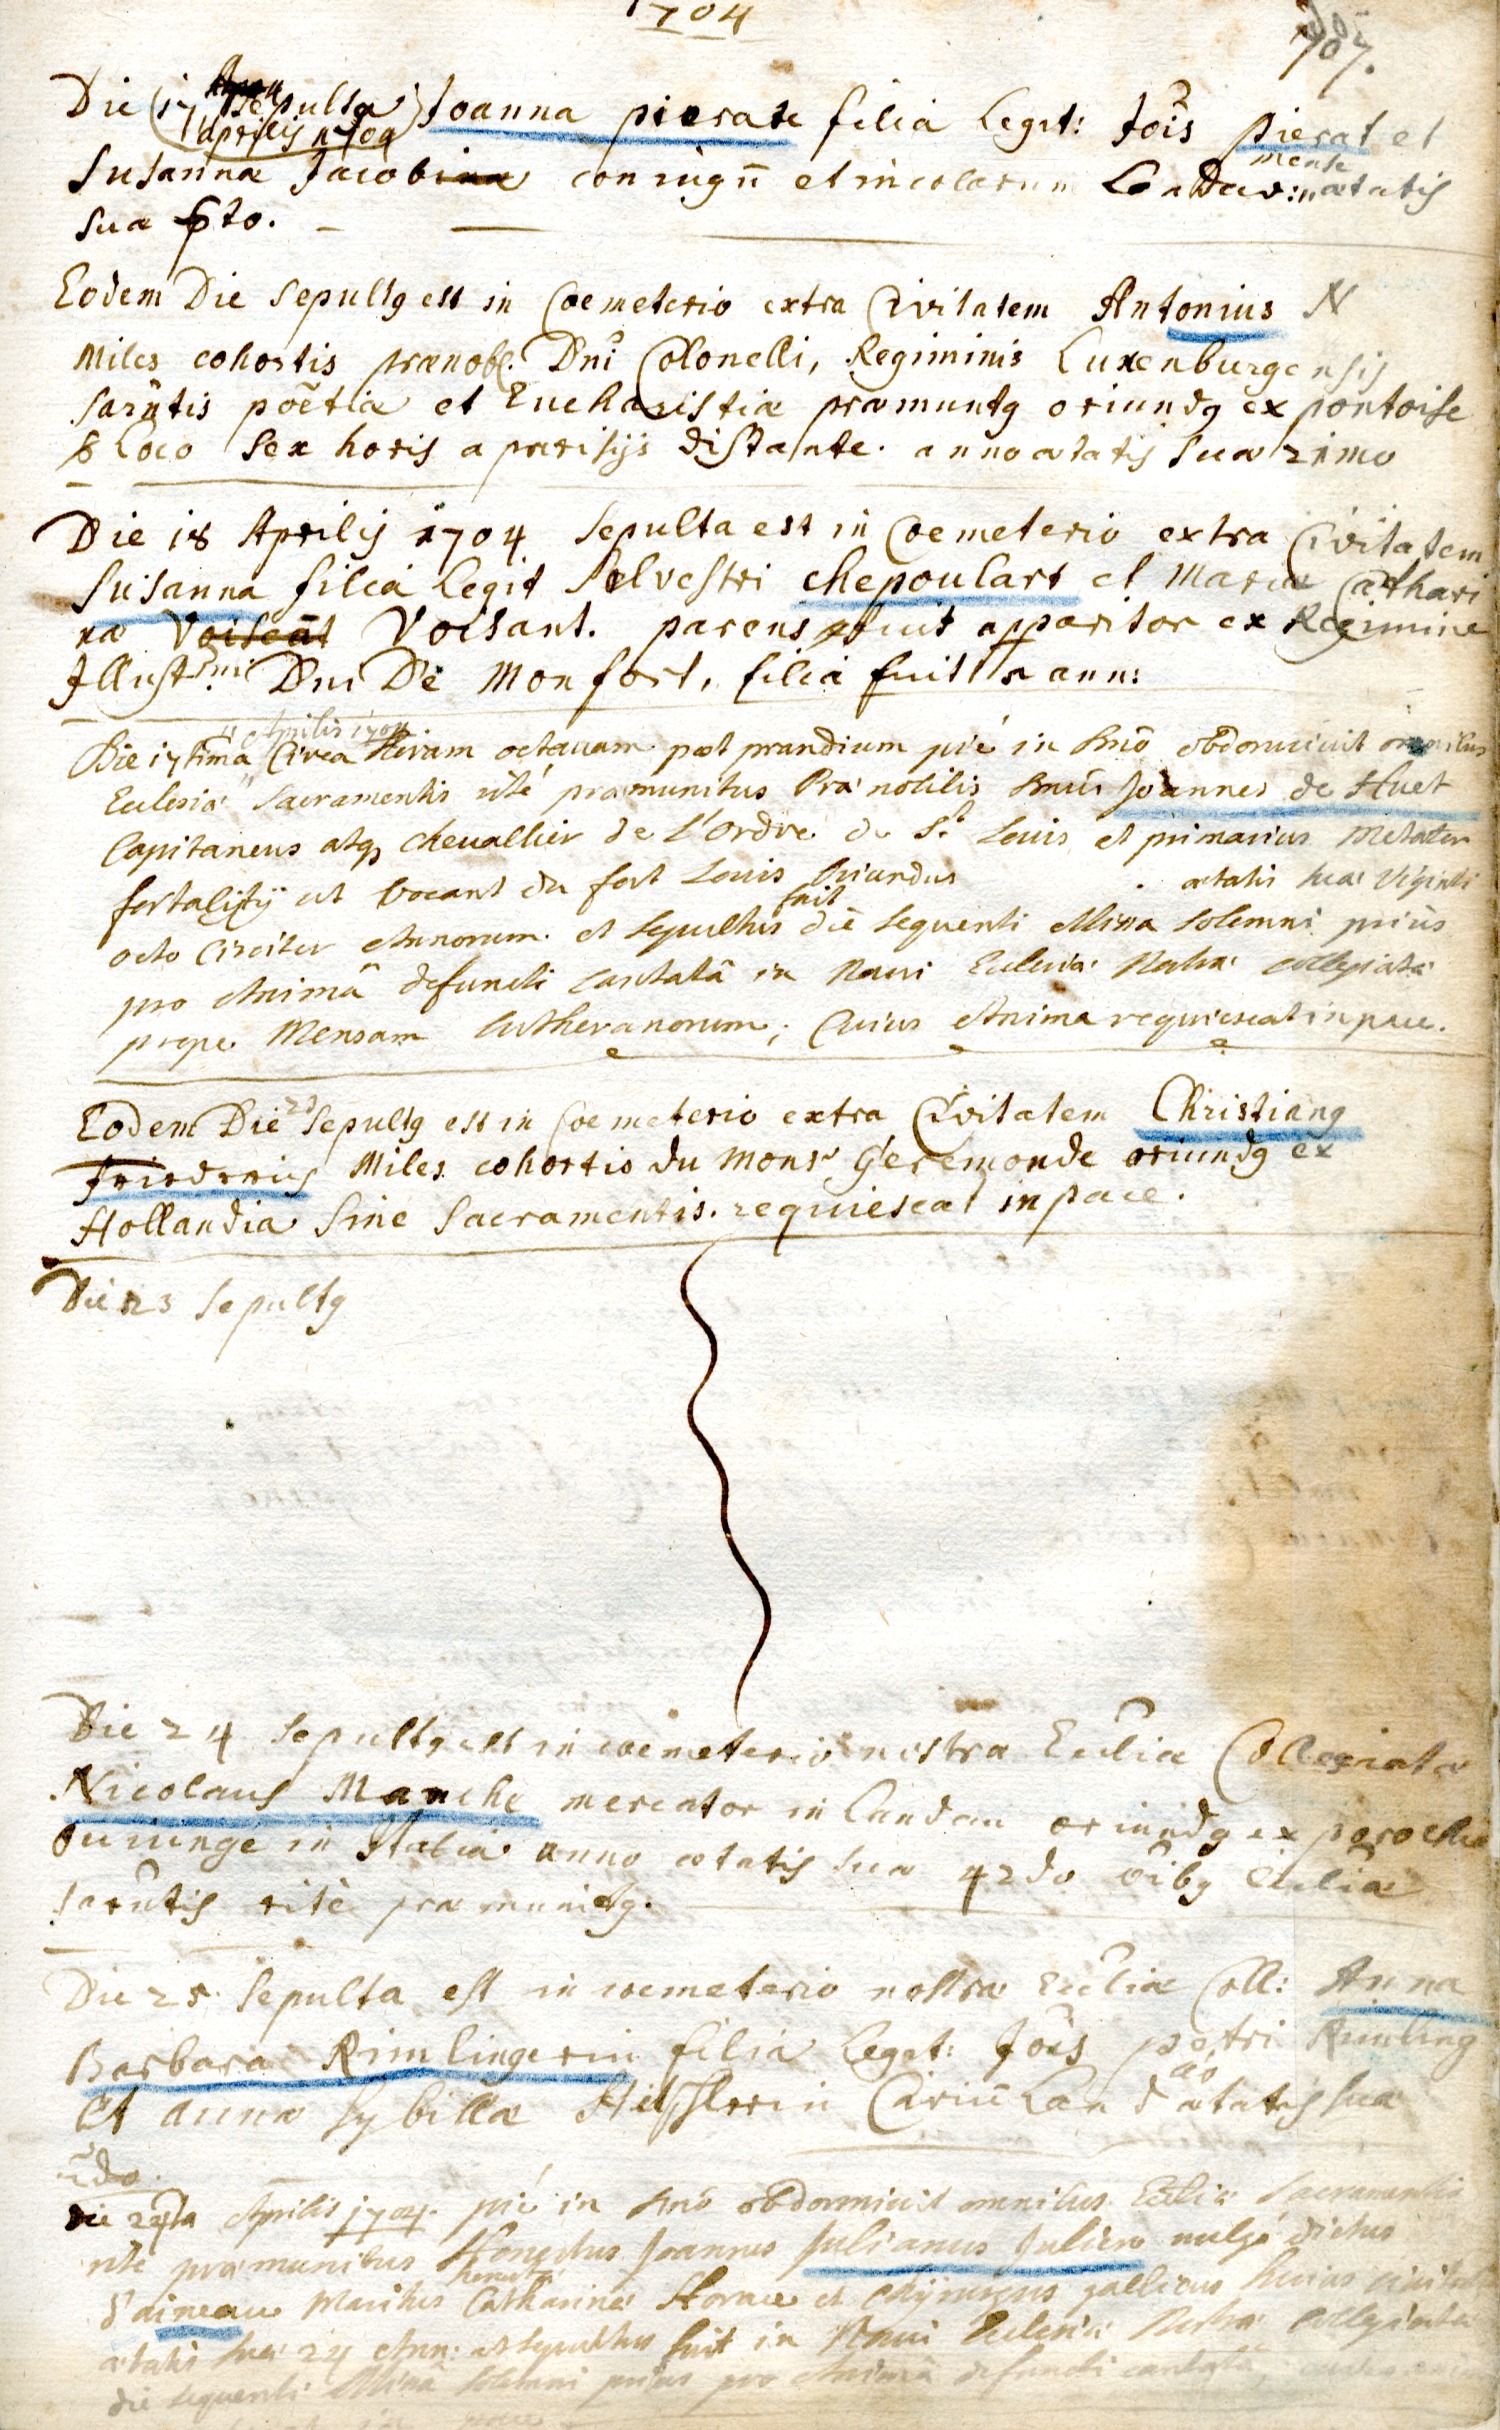 1704
707.
Die 17 sepulta Joanna pierate filia Legit: Jois pierat et
aprilis 1704
Susannæ Jacobina coniugū et incolarum Landav: ætatis
mense
sua 6to.
Eodem Die Sepultg est in Coemeterio extra Civitatem Antonius N
Miles cohortis prænob. Dnī Colonelli, Regiminis Luxenburgensis
sarūtis poētiæ et Eucharistiæ præmuntg oriundg ex pontoise
Loco sex horis a parisijs distante. anno ætatis suæ 21mo
Die 18 Aprilis 1704 Sepulta est in Coemeterio extra Civitatem
Susanna filia Legit Silvestri chepoulart et Mariæ Cathari
næ Voisent Voisant. parens fuit apparitor ex Regimine
Illustr.mi Dni De Monfort, filia fuit 2 ann:
Aprilis 1704
Die 17tima Circa Horam octavam post prandium pié in Dnō obdormivit omnibus
Ecclesiæ Sacramentis rité præmunitus Præ nobilis Dnūs Joannes de Huet
Capitaneus atq, chevallier de L'ordre de St. Louis et primarius Metator
fortalitij ut vocant du fort Louis Oriundus . ætatis suæ Viginti
octo Circiter Annorum. et sepultus fuit die sequenti Missa solemni priùs
pro Animâ defuncti cantatâ in Navi Ecclesiæ Nostræ collegiatæ
prope Mensam Lutheranorum; Cuius Anima requiescat in pace.
Eodem Die 23 Sepultg est in Coemeterio extra Civitatem Christiang
Friedrrius Miles cohortis du Monsr Geremonde oriundg ex
Hollandia Sine Sacramentis. requiescat in pace.
Die 23 Sepultg
Die 24 sepultg est in coemeterio nostræ Ecclīæ Collegiatæ
Nicolaus Manche mercator in Landau oriundg ex parochia
in Italia anno ætatis suæ 42do oībg Ecclīæ
sarūtis ritè præmunitg.
Die 25 Sepulta est in coemeterio nostræ Ecclīæ Coll: Anna
Barbara Rimlingerin filia Legit: Jōis petri Rimling
Et annæ Sybillæ Civiū Land ætatis suæ
ao
2do.
Die 24ta Aprilis 1704. pié in Dnō obdormivit omnibus Ecclīæ Sacramentis
rité præmunitus Honestus Joannes Julianus Juliero vulgó dictus
d'aineau Maritus honestæ Catharinæ et Chijrurgus gallicus huius
ætatis suæ 24 Ann: et sepultus fuit in Navi Ecclesiæ Nostræ collegiatæ
die sequenti Missâ solemni priùs pro Animâ defuncti cantatâ,